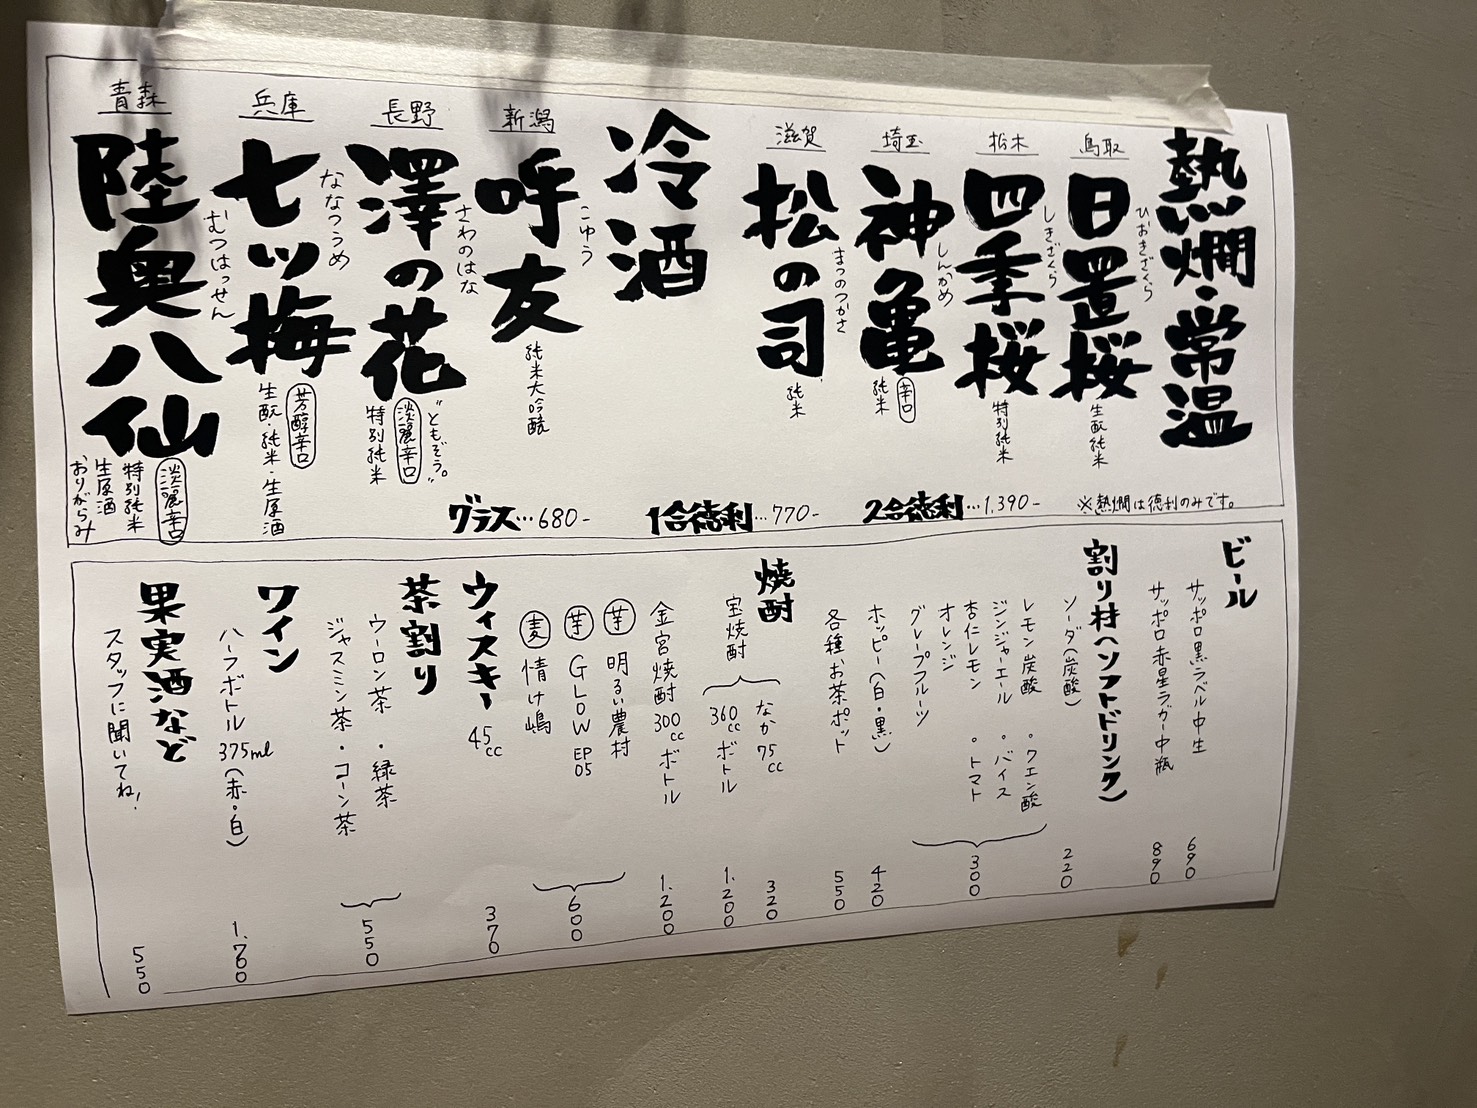 熱燗・常温
鳥取
日置桜
ひおきざくら
生酛純米
栃木
四季桜
しきざくら
特別純米
埼玉
神亀
しんかめ
辛口
純米
滋賀
松の司
まつのつかさ
純米
冷酒
新潟
呼友
こゆう
純米大吟醸
長野
澤の花
さわのはな
"ともぞう。
淡麗辛口
特別純米
兵庫
七ツ梅
ななつうめ
芳醇辛口
生酛・純米・生原酒
青森
陸奥八仙
むつはっせん
淡麗辛口
特別純米
生原酒
おりがらみ
グラス…680-
1合徳利…770-
2合徳利…1,390-
※熱燗は徳利のみです。
ビール
サッポロ黒ラベル中生 690
サッポロ赤星ラガー中瓶 890
割り材(ソフトドリンク)
ソーダ(炭酸) 220
レモン炭酸 。クエン酸
ジンジャーエール 。バイス
杏仁レモン 。トマト
オレンジ
グレープフルーツ
300
ホッピー(白・黒) 420
各種お茶ポット 550
焼酎
宝焼酎
なか75cc 320
360ccボトル 1.200
金宮焼酎300ccボトル 1.200
芋 明るい農村
芋 GLOW EP05
麦 情け嶋
600
ウィスキー 45cc 370
茶割り
ウーロン茶・緑茶
ジャスミン茶・コーン茶
550
ワイン
ハーフボトル375ml(赤・白) 1.760
果実酒など
スタッフに聞いてね! 550